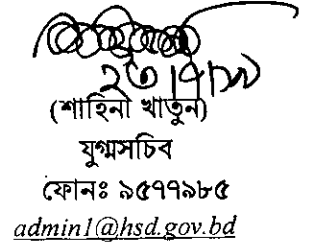 (শাহিনা খাতুন)
যুগ্মসচিব
ফোনঃ ৯৫৭৭৯৮৫
admin1@hsd.gov.bd